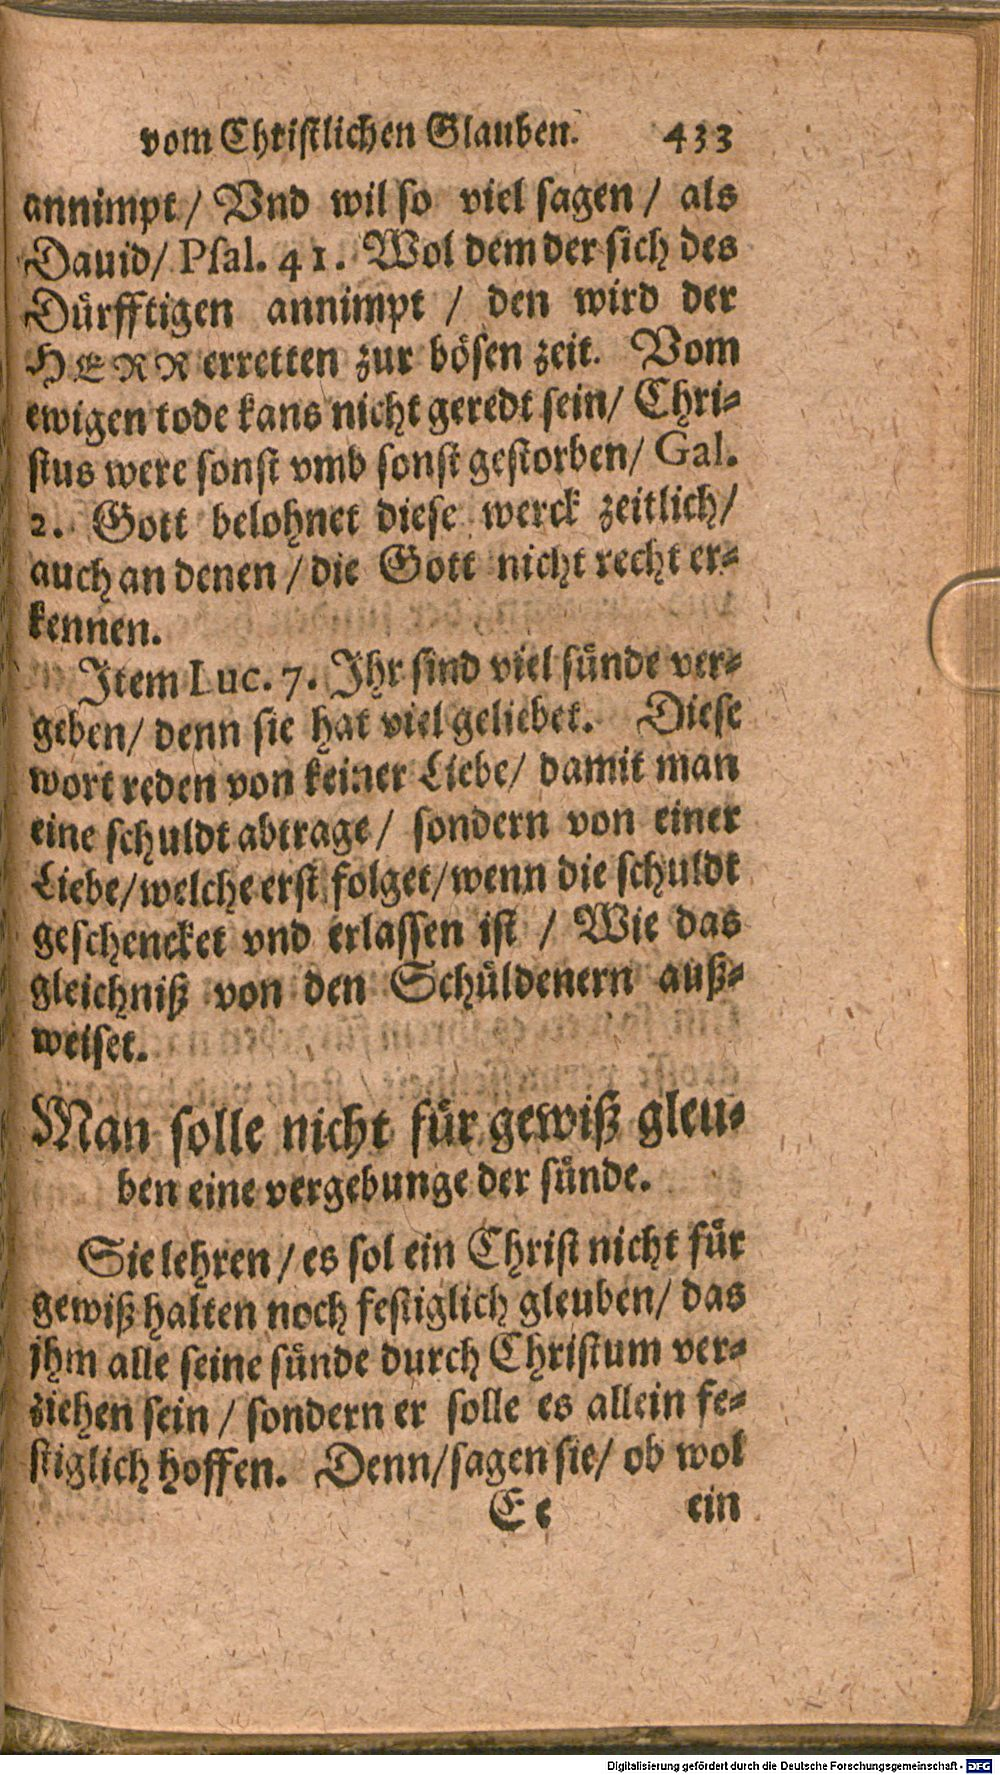 vom Christlichen Glauben. 433
annimpt / Vnd wil so viel sagen / als
Dauid / Psal. 41. Wol dem der sich des
Dürfftigen annimpt / den wird der
HERR erretten zur bösen zeit. Vom
ewigen tode kans nicht geredt sein / Chri⸗
stus were sonst vmb sonst gestorben / Gal.
2. Gott belohnet diese werck zeitlich /
auch an denen / die Gott nicht recht er⸗
kennen.
Item Luc. 7. Ihr sind viel sünde ver⸗
geben / denn sie hat viel geliebet. Diese
wort reden von keiner Liebe / damit man
eine schuldt abtrage / sondern von einer
Liebe / welche erst folget / wenn die schuldt
geschencket vnd erlassen ist / Wie das
gleichniß von den Schüldenern auß⸗
weiset.
Man solle nicht für gewiß gleu⸗
ben eine vergebunge der sünde.
Sie lehren / es sol ein Christ nicht für
gewiß halten noch festiglich gleuben / das
jhm alle seine sünde durch Christum ver⸗
ziehen sein / sondern er solle es allein fe⸗
stiglich hoffen. Denn / sagen sie / ob wol
Ee ein
Digitalisierung gefördert durch die Deutsche Forschungsgemeinschaft - DFG